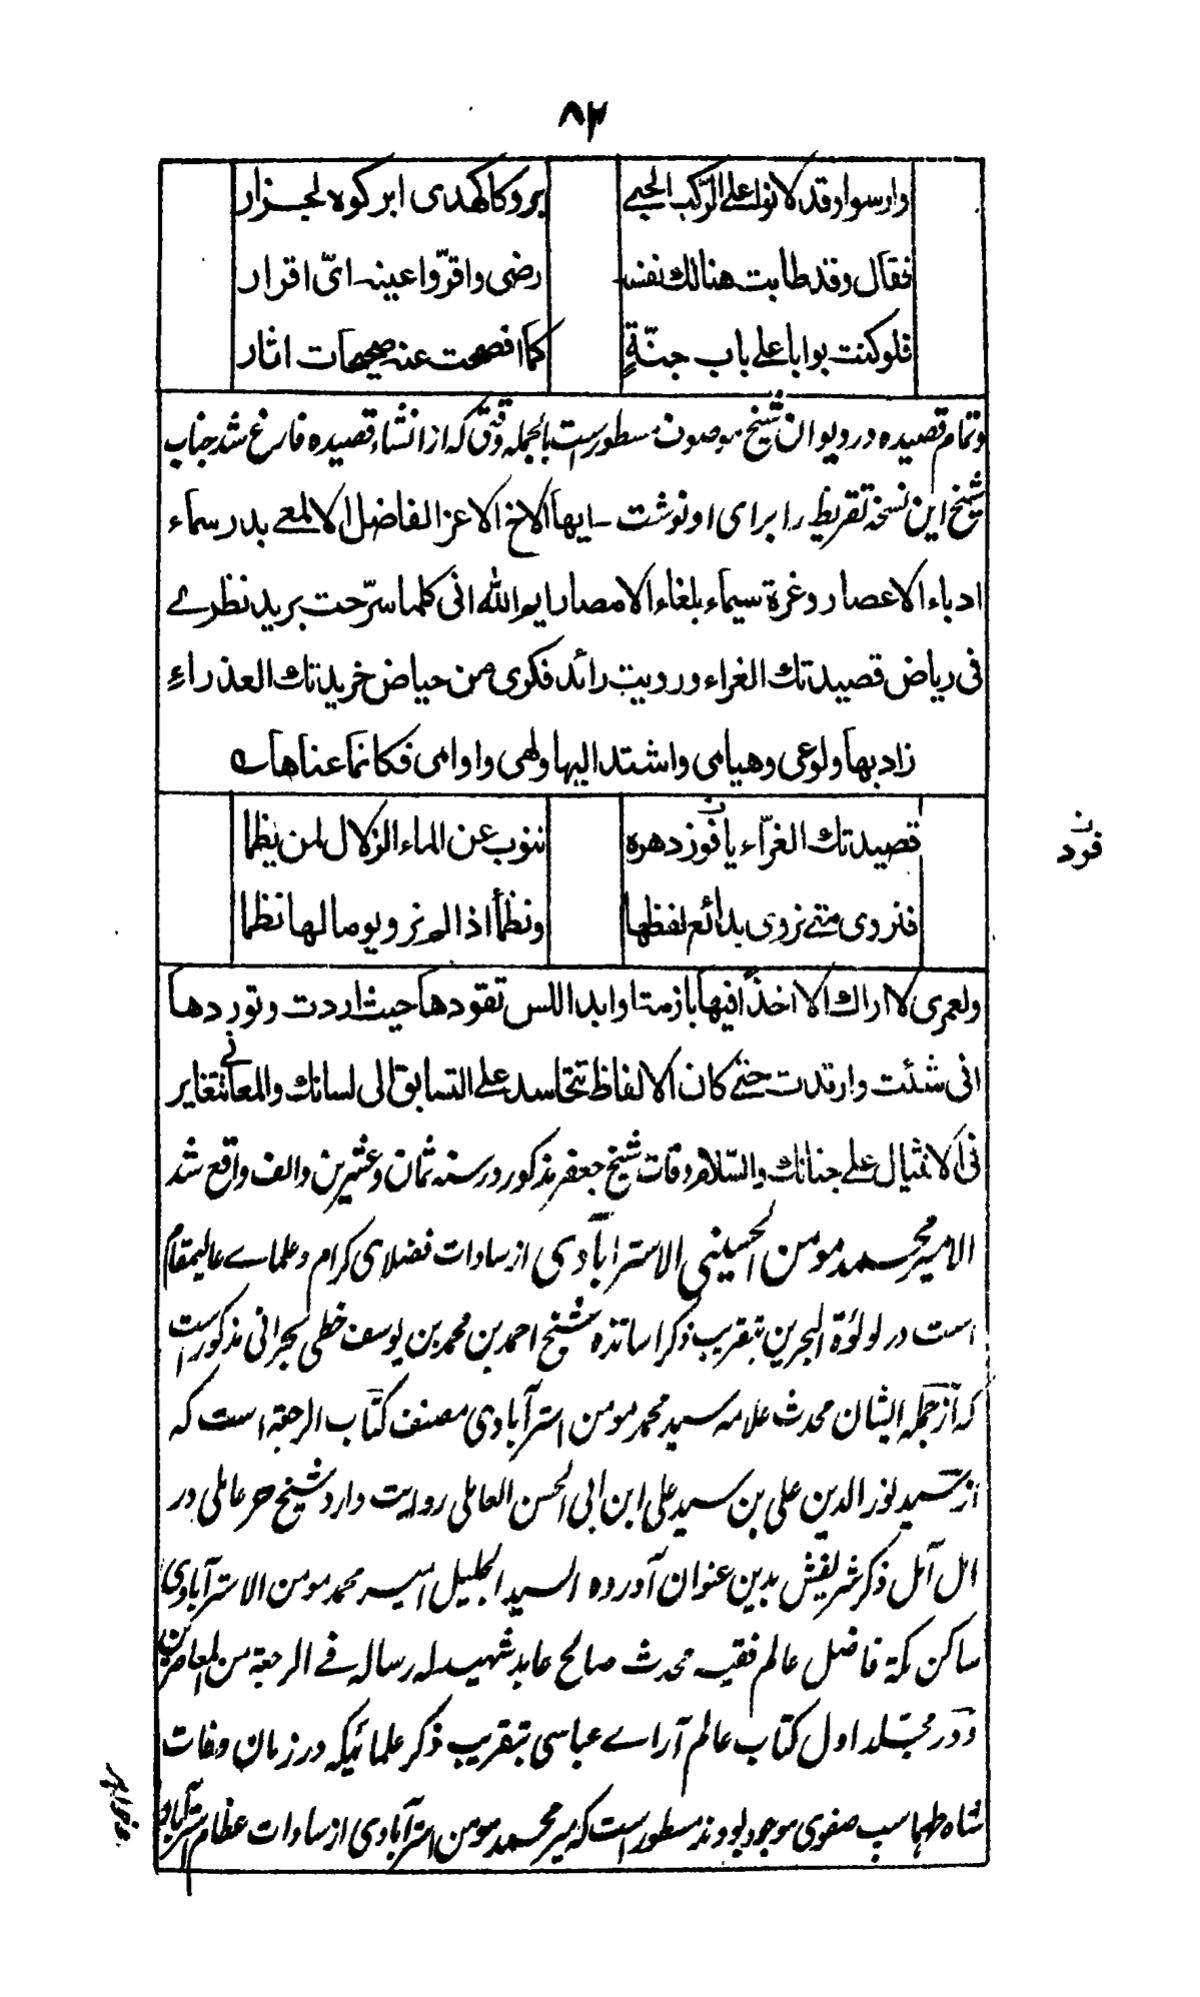 ۸۲
وارسوا وقد لانوا على الركب الحبى
بروكا كهدى ابركوه لجزار
فقال وقد طابت هنالك نفسه
رضى واقروا عينه اىّ اقرار
فلو كنت بوابا على باب جنّةٍ
كما افصحت عنه صحيحات اثار
وتمام قصیده در دیوان شیخ موصوف مسطور است بالجمله وقتی که از انشاء قصیده فارغ شد جناب
شیخ این نسخه تقریظ را برای او نوشت ايها الاخ الاعز الفاضل الالمعے بدر سماء
ادباء الاعصار وغرة سيماء بلغاء الامصار ايم الله انى كلما سرّحت بريد نظرے
فى رياض قصيدتك الغراء ورويت رائد فكرى من حياض خريدتك العذراءِ
زاد بها ولوعى وهيامى واشتد اليها ولهى واوامى فكانما عناها
قصيدتك الغرّاء يا فوز دهره
تنوب عن الماء الزلال لمن يظما
فنروى متے نروى بدائع لفظها
ونظمأ اذا لم نرو يوما لها نظما
ن فرد
ولعمرى لا اراك الا اخذاً فيها بازمة اوابد اللس تقودها حيث اردت وتوردها
انى شئت وارتدت حتے كان الالفاظ تتحاسد على التسابق الى لسانك والمعانى تتغاير
فى الانثيال على جنانك والسلام وفات شیخ جعفر مذکور در سنه ثمان وعشرین والف واقع شد
الامیر محمد مومن الحسینی الاسترآبادی از سادات فضلای کرام وعلماے عالیمقام
است در لولوة البحرین بتقریب ذکر اساتذه شیخ احمد بن محمد بن یوسف خطی بحرانی مذکور است
که از جمله ایشان محدث علامه سید محمد مومن استرآبادی مصنف کتاب الرجعة است که
از سید نور الدین علی بن سید علی ابن ابی الحسن العاملی روایت دارد شیخ حر عاملی در
امل آمل ذکر شریفش بدین عنوان آورده السید الجلیل امیر محمد مومن الاسترآبادی
ساکن مکة فاضل عالم فقیه محدث صالح عابد شهید له رسالة فے الرجعة من المعاصرین
ودر مجلد اول کتاب عالم آراے عباسی بتقریب ذکر علمائیکه در زمان وفات
شاه طهماسپ صفوی موجود بودند مسطور است که میر محمد مومن استرآبادی از سادات عظام استرآباد